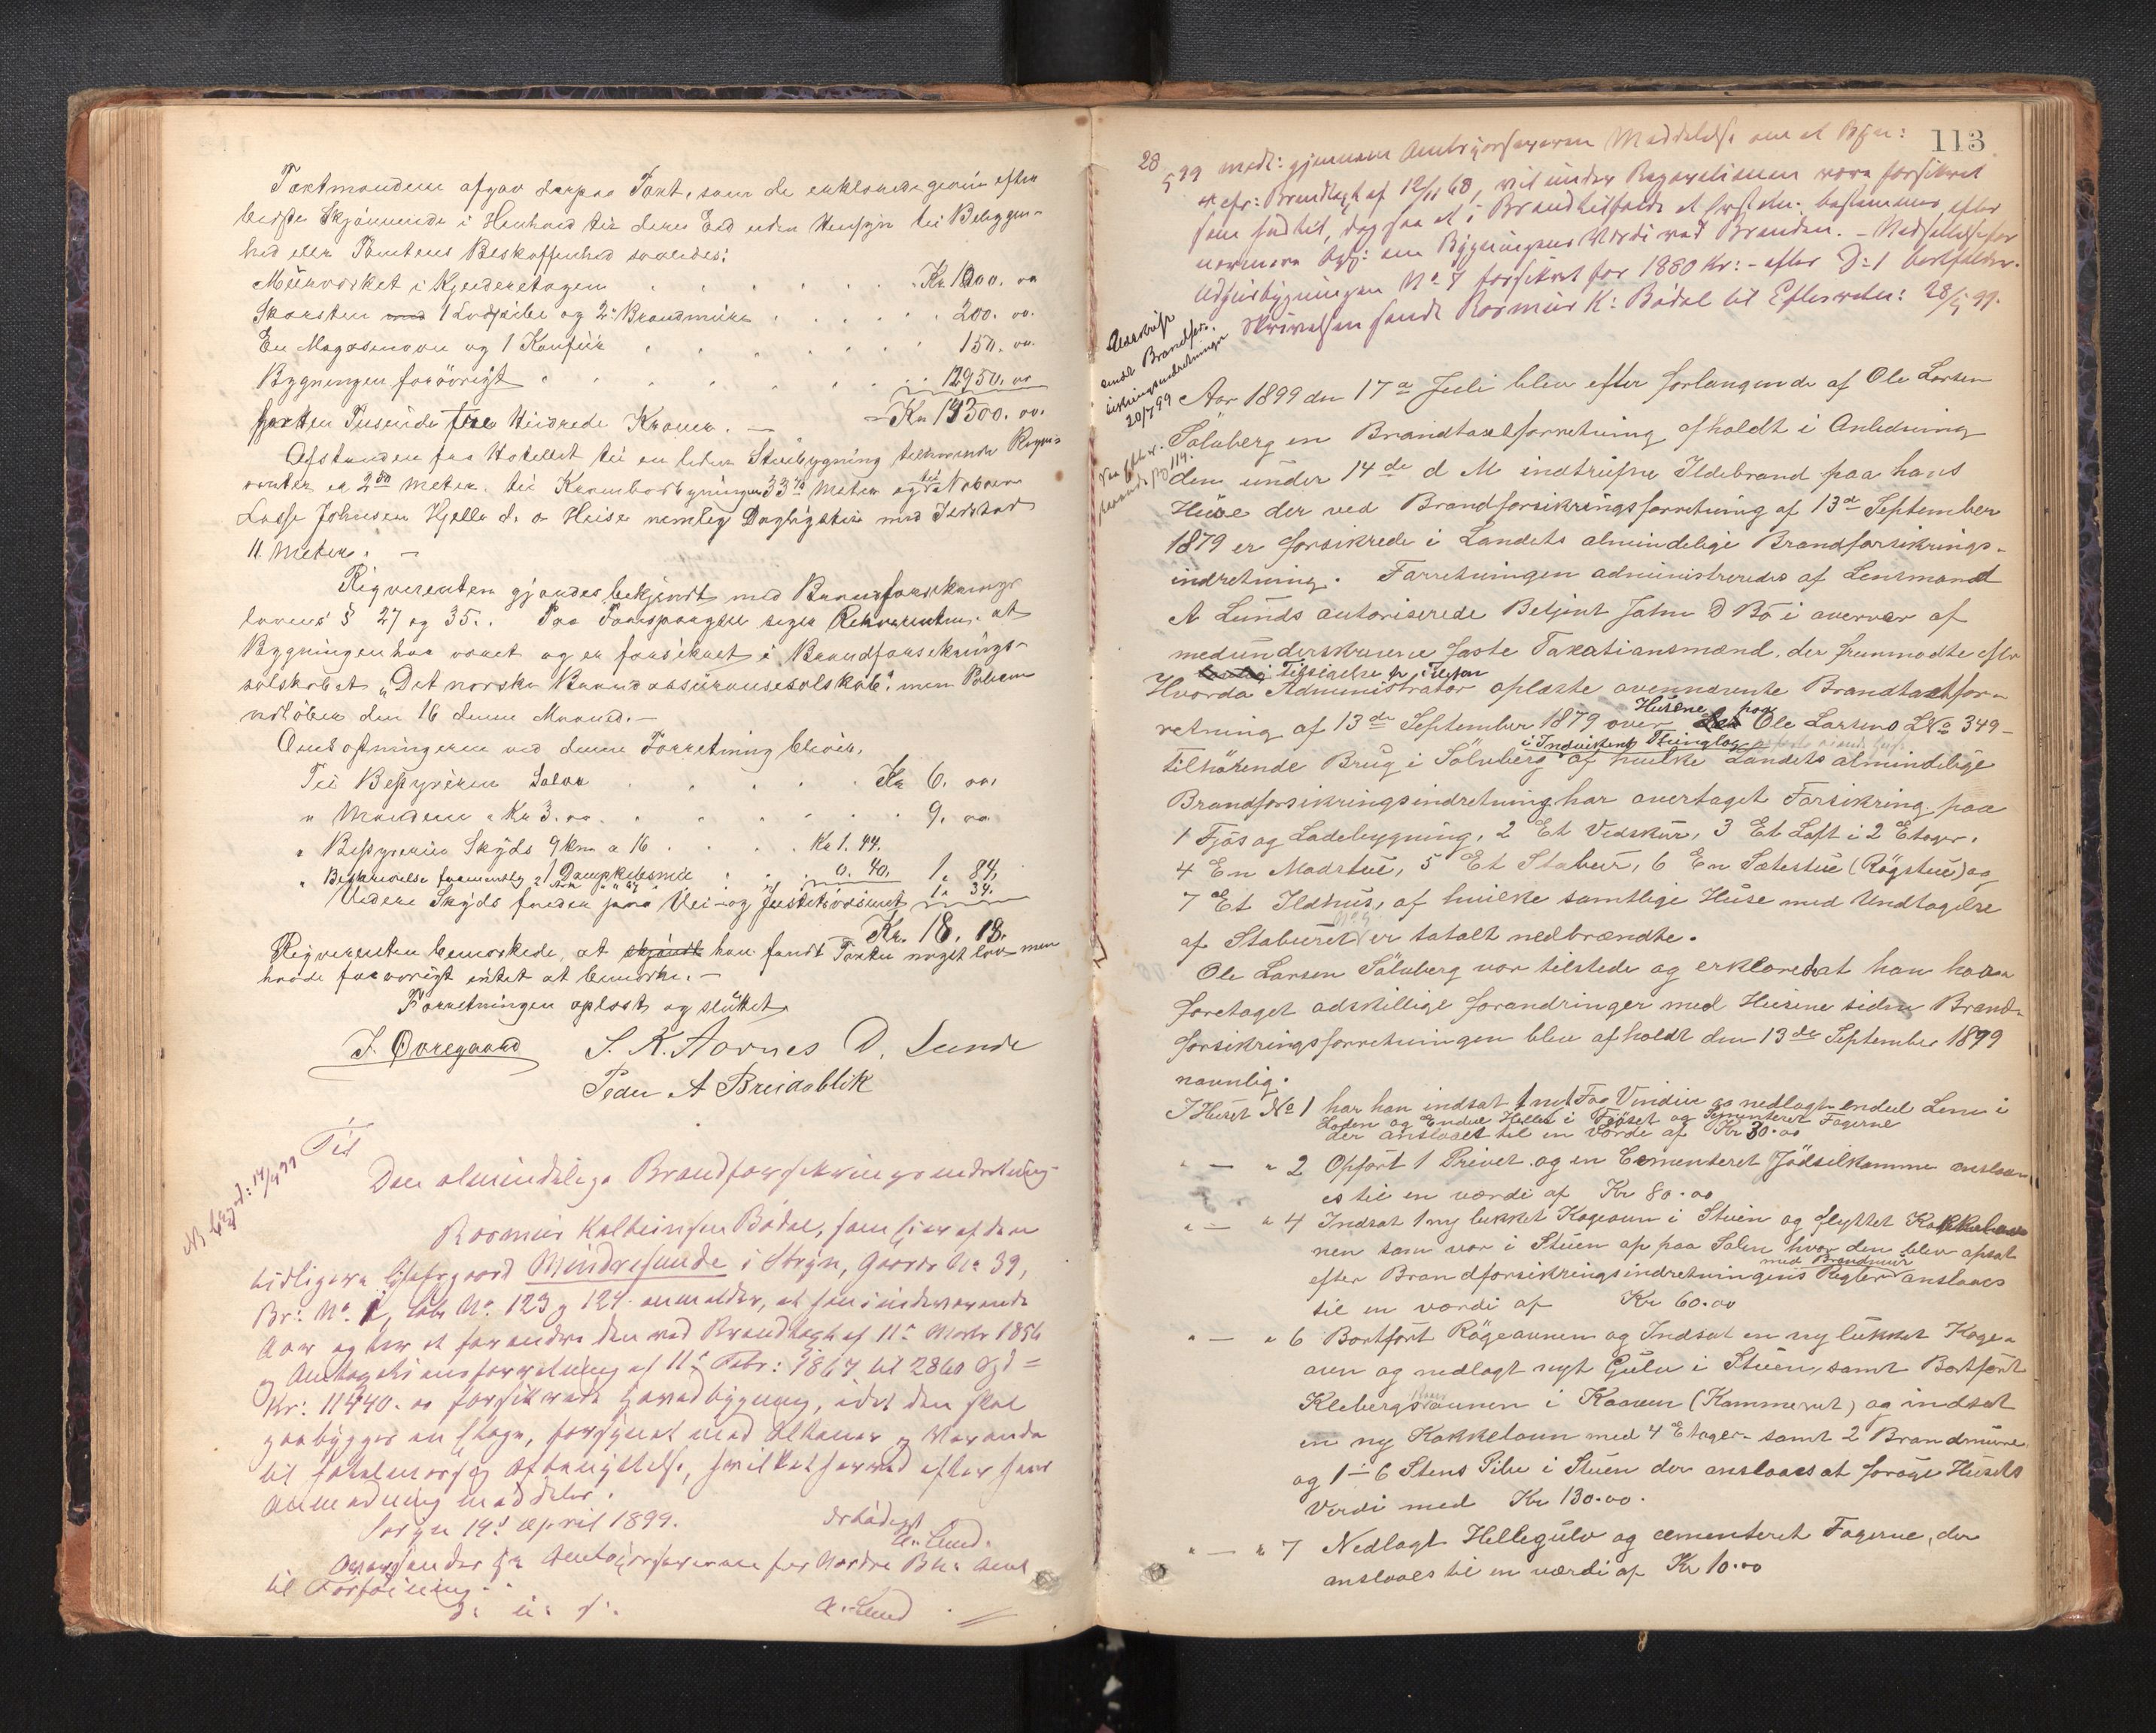 Taxtmændene afgav derpaa Taxt, som de erklærede given efter
bedste Skjønnende i Henhold til deres Ed uden Hensyn til Beliggen-
hed eller Tomtens Beskaffenhed saaledes:
Muurverket i Kjelderetagen . . . Kr 1000. oo
Skorsten med 1 Lodpibe og 2 Brandmure . . . 200. oo.
En Magasinovn og 1 Komfür . . . 150. oo.
Bygningen forövrigt . . . 12950. oo
fjorten Tusinde tre Hundrede Kroner. — Kr 14300. oo.
Afstanden fra Hotellet til en liden Stuebygning tilhørende Reqvi-
renten er meter. til Kramboebygningen meter og til Naboen
Lasse Johnsen Hjelle d. o Huse nemlig Dagligstue med Ildsted
11 Meter. —
Reqvirenten gjordes bekjendt med Brandforsikrings
lovens § 27 og 35. Paa Forespørgsel siger Rekvirenten at
Bygningen har været og er forsikret i Brandforsikrings-
selskabet "Det norske Brandassuranceselskab", men Policen
udløber den 16 denne Maaned. —
Omkostningerne ved denne Forretning bliver,
Til Bestyreren Salær . . . Kr 6. oo.
" Mændene a Kr 3. oo . . . 9. oo
" Bestyreren Skyds 9 km a 16 . . . Kr 1. 44.
" Bestyrerens fremmøde 1 Dampskibsmil . . . 0. 40. 1. 84.
Videre Skyds 1. 34.
Kr. 18. 18.
Reqvirenten bemærkede, at skjöndt han fandt Taxten noget lav men
havde forøvrigt intet at bemærke. —
Forretningen oplæst og sluttet.
J. Øvregaard S. K. Aarnes D. Lunde
Peder A Breidablik
NB 14/4 99
Til
Den almindelige Brandforsikringsindretning
Rasmus Bødal, som Eier af den
tidligere Gjestgaard Mindresunde i Stryn, Gaards No 39,
Br: No 1, løb No 123 og 124 anmelder, at han i indeværende
Aar agter at forandre den ved Brandtaxt af 11te Marts 1856
og Omtaxationsforretning af 11te Febr: 1867 til 2860 Spd =
Kr: 11440. oo forsikrede Hovedbygning, idet den skal
paabygges en Etage, forsynet med Altaner og Veranda
til Hotelmæssig Afbenyttelse, hvilket herved efter hans
Anmodning meddeles.
Stryn 14de April 1899.
Ærbødigst
A. Lund.
Oversendes Hr Amtsforstanderen for Nordre Bh. Amt
til Forføining.
D. u. s. A. Lund
113
28/5 99 medd: gjennem Meddelelse om at
jfr: Brandtaxt af 12/11 68, vil under Reparationen være forsikret
som hidtil, dog saa at i Brandtilfælde at Erstatn: bestemmes efter
nærmere Opg: om Bygningens Værdi ved Branden. — Nedsættelse for
Udhusbygningen No 7 forsikret for 1880 Kr: - efter bortfalder.
Skrivelsen sendt Rasmus K: Bødal til Efterretn: 28/5 99.
Udskrift
sendt Brandfor-
sikringsindretningen
20/7 99
pag 114.
Aar 1899 den 17de Juli blev efter forlangende af Ole Larsen
Sölvberg en Brandtaxtforretning afholdt i Anledning
den under 14de d M indtrufne Ildebrand paa hans
Huse der ved Brandforsikringsforretning af 13de September
1879 er forsikrede i Landets almindelige Brandforsikrings-
indretning. Forretningen administreredes af Lensmand
A Lunds autoriserede Betjent John D Bø i overvær af
medunderskrevne faste Taxationsmænd, der fremmødte efter
Tilsigelse
Hvorda Administrator oplæste ovennævnte Brandtaxtfor-
retning af 13de September 1879 over Husene paa Ole Larsens LNo 349 -
tilhörende Brug i Sölvberg i Indvikens Thinglag af hvilke Landets almindelige
Brandforsikringsindretning har overtaget Forsikring paa
1 Fjøs og Ladebygning, 2 Et Vedskur, 3 Et Loft i 2 Etager,
4 En Madstue, 5 Et Stabur, 6 En Sætestue (Røgstue) og
7 Et Ildhus, af hvilke samtlige Huse med Undtagelse
af Staburet No 5 er totalt nedbrændte.
Ole Larsen Sölvberg var tilstede og erklærede at han havde
foretaget adskillige forandringer med Husene siden Brand-
forsikringsforretningen blev afholdt den 13de September 1899
navnlig.
I Huset No 1 har han indsat 1 nyt Fag Vinduer og nedlagt endeel Lem i
Laden og Endeel Heller i Fjöset og Sementeret Fagerne
der ansloaes til en værdi af Kr 30.oo
" — " 2 Opført 1 Privet og en Cementeret Jödselkumme ansloa-
es til en værdi af Kr 80.oo
" — " 4 Indsat 1 ny lukket Kogeovn i Stuen og flyttet Kakkelov-
nen som var i Stuen op paa Salen hvor den blev opsat
efter Brandforsikringsindretningens Regler med Brandmur ansloaes
til en værdi af Kr 60.oo
" — " 6 Bortført Røgeovnen og Indsat en ny lukket Koge-
ovn og nedlagt nyt Gulv i Stuen, samt Bortført
Klebergstensovnen i Kaaven (Kammeret) og indsat
en ny Kakkelovn med 4 Etager samt 2 Brandmure
og 1 - 6 Stens Pibe i Stuen der ansloaes at forøge Husets
Verdi med Kr 130.oo.
" — " 7 Nedlagt Hellegulv og cementeret Fagerne, der
ansloaes til en værdi af Kr 10.oo